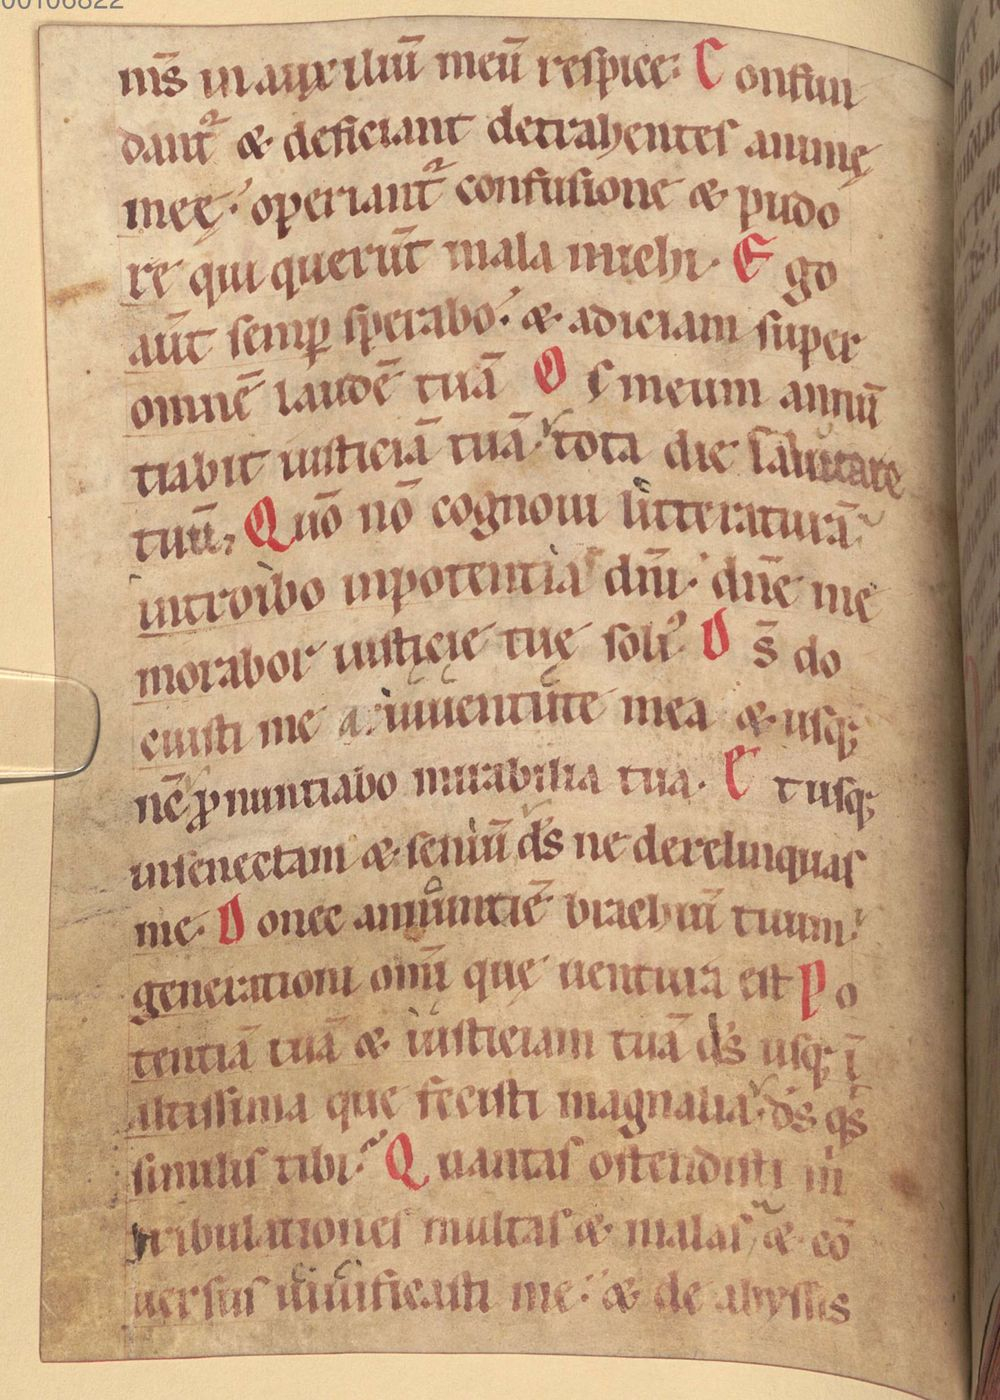 00106822
m̄s in auxiliū meū respice: Confun
dant᷑ & deficiant detrahentes animę
meę. operiant᷑ confusione & pudo
re qui querūt mala michi. Ego
aūt semꝑ sperabo. & adiciam super
omnē laudē tuā Os meum annū
tiabit iusticiā tuā. tota die salutare
tuū, Quō nō cognoui litteraturā
introibo inpotentia dn̄i. dn̄e me
morabor iusticię tuę soli᷒ Ds̄ do
cuisti me a iuuentute mea & usqꝫ
nc̄ ꝓnuntiabo mirabilia tua. Et usqꝫ
insenectam & seniū ds̄ ne derelinquas
me. Donec annuntiē brachiū tuum.
generationi omī quę uentura est Po
tentiā tuā & iusticiam tuā ds̄ usqꝫ ī
altissima que fecisti magnalia. ds̄ qs̄
similis tibi. Quantas ostendisti m̄
tribulationes multas & malas, & cō
uersus uiuificasti me. & de abyssis